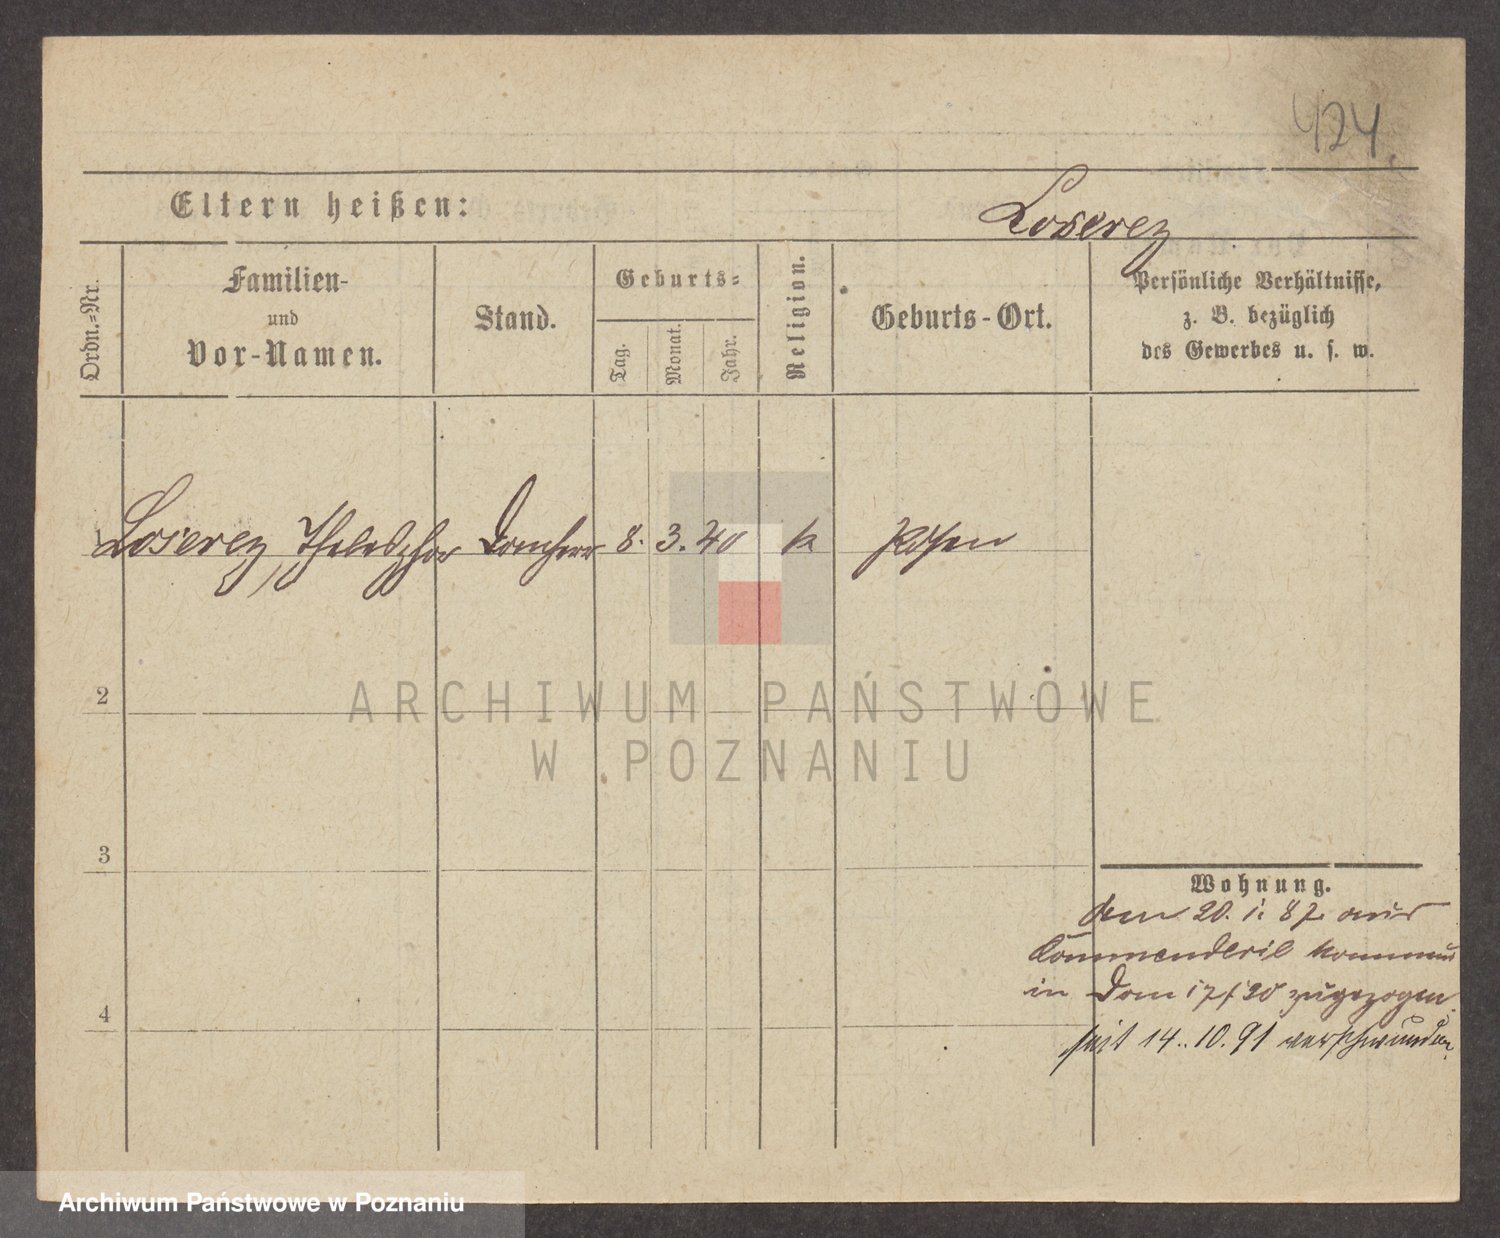 424.
Eltern heißen:
Loserez
Ordn.=Nr.
Familien-
und
Vor-Namen.
Stand.
Geburts=
Tag.
Monat.
Jahr.
Religion.
Geburts-Ort.
Persönliche Verhältnisse,
z. B. bezüglich
des Gewerbes u. s. w.
1
Loserez, Thelesphor Domherr 8. 3. 40 k Posen
2
ARCHIWUM PAŃSTWOWE
W POZNANIU
3
Wohnung.
den 20. 1. 87. aus
Commenderie
in Dom 17/20 zugezogen.
seit 14. 10. 91 verschwunden.
4
Archiwum Państwowe w Poznaniu